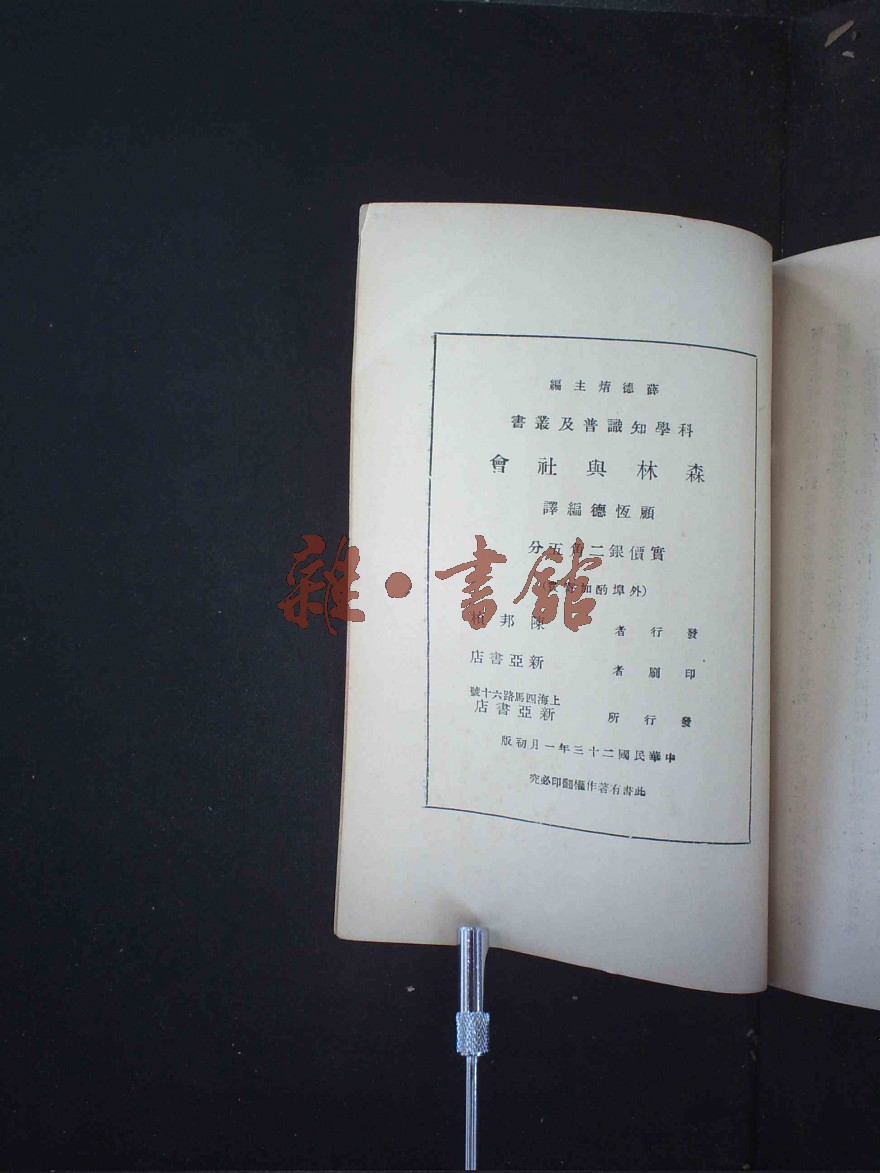 薛德焴主編
科學知識普及叢書
森林與社會
顧恆德編譯
實價銀二角五分
(外埠酌加寄費)
發行者 陳邦楨
印刷者 新亞書店
上海四馬路六十號
發行所 新亞書店
中華民國二十三年一月初版
此書有著作權翻印必究
雜・書館